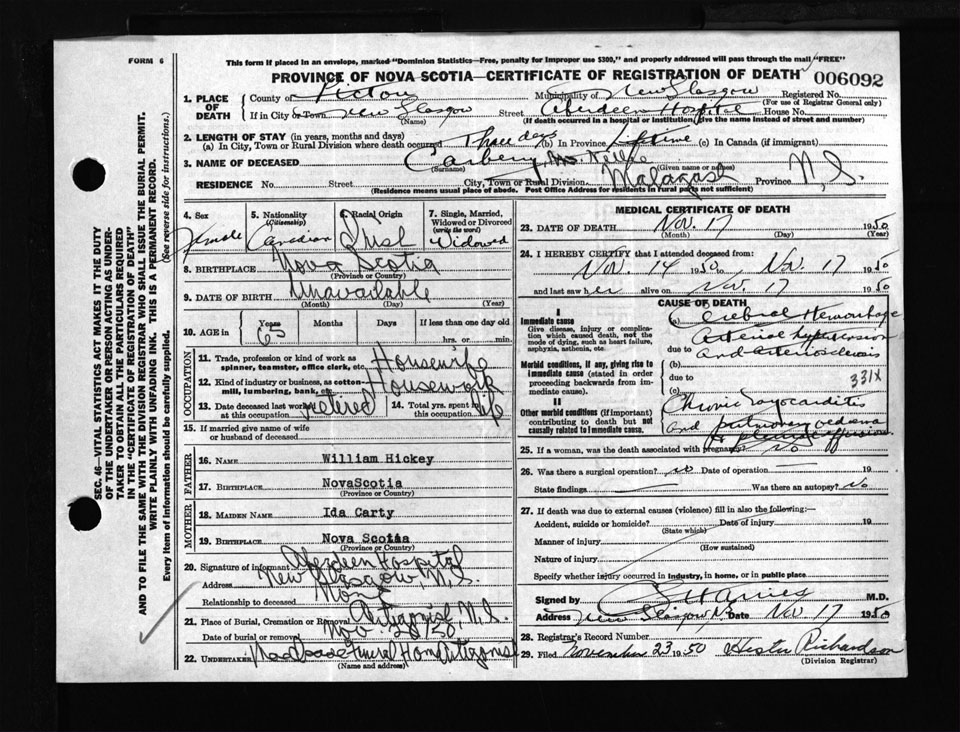 FORM 6
This form if placed in an envelope, marked "Dominion Statistics—Free, penalty for improper use $300," and properly addressed will pass through the mail "FREE"
PROVINCE OF NOVA SCOTIA—CERTIFICATE OF REGISTRATION OF DEATH
006092
1. PLACE OF DEATH
County of Pictou Municipality of New Glasgow Registered No.
(For use of Registrar General only)
If in City or Town New Glasgow Street Aberdeen Hospital House No.
(Name) (If death occurred in a hospital or institution, give the name instead of street and number)
2. LENGTH OF STAY (in years, months and days)
(a) In City, Town or Rural Division where death occurred Three days (b) In Province Lifetime (c) In Canada (if immigrant)
3. NAME OF DECEASED Carbery, Mrs. Nellie
(Surname) (Given name or names)
RESIDENCE No. Street City, Town or Rural Division Malagash Province N.S.
(Residence means usual place of abode. Post Office Address for residents in rural parts not sufficient)
4. Sex Female
5. Nationality (Citizenship) Canadian
6. Racial Origin Irish
7. Single, Married, Widowed or Divorced (write the word) Widowed
8. BIRTHPLACE Nova Scotia
(Province or Country)
9. DATE OF BIRTH Unavailable
(Month) (Day) (Year)
10. AGE in Years Months Days If less than one day old
65 hrs. or min.
OCCUPATION
11. Trade, profession or kind of work as spinner, teamster, office clerk, etc. Housewife
12. Kind of industry or business, as cotton-mill, lumbering, bank, etc. Housework
13. Date deceased last worked at this occupation retired
14. Total yrs. spent in this occupation life
15. If married give name of wife or husband of deceased
FATHER
16. NAME William Hickey
17. BIRTHPLACE NovaScotia
(Province or Country)
MOTHER
18. MAIDEN NAME Ida Carty
19. BIRTHPLACE Nova Scotia
(Province or Country)
20. Signature of informant Aberdeen Hospital
Address New Glasgow, N.S.
Relationship to deceased None
21. Place of Burial, Cremation or Removal Antigonish, N.S.
Date of burial or removal Nov. 20/50
22. UNDERTAKER Funeral Home Antigonish
(Name and address)
MEDICAL CERTIFICATE OF DEATH
23. DATE OF DEATH Nov. 17 1950
(Month) (Day) (Year)
24. I HEREBY CERTIFY that I attended deceased from:
Nov. 14 1950 to Nov. 17 1950
and last saw her alive on Nov. 17 1950
CAUSE OF DEATH
I
Immediate cause
Give disease, injury or complication which caused death, not the mode of dying, such as heart failure, asphyxia, asthenia, etc.
(a) Cerebral Hemorrhage
due to Arterial hypertension and arteriosclerosis
Morbid conditions, if any, giving rise to immediate cause (stated in order proceeding backwards from immediate cause).
(b)
due to
331X
(c)
II
Other morbid conditions (if important) contributing to death but not causally related to immediate cause.
Chronic myocarditis
and pulmonary oedema
& pleural effusion
25. If a woman, was the death associated with pregnancy? no
26. Was there a surgical operation? no Date of operation — 19
State findings — Was there an autopsy? No
27. If death was due to external causes (violence) fill in also the following:—
Accident, suicide or homicide? Date of injury 19
(State which)
Manner of injury
(How sustained)
Nature of injury
Specify whether injury occurred in industry, in home, or in public place
Signed by M.D.
Address New Glasgow N.S. Nov 17 1950
28. Registrar's Record Number
29. Filed November 23 1950 Hester Richardson
(Division Registrar)
SEC. 46—VITAL STATISTICS ACT MAKES IT THE DUTY
OF THE UNDERTAKER OR PERSON ACTING AS UNDER-
TAKER TO OBTAIN ALL THE PARTICULARS REQUIRED
IN THE "CERTIFICATE OF REGISTRATION OF DEATH"
AND TO FILE THE SAME WITH THE DIVISION REGISTRAR WHO SHALL ISSUE THE BURIAL PERMIT.
WRITE PLAINLY WITH UNFADING INK. THIS IS A PERMANENT RECORD.
Every item of information should be carefully supplied. (See reverse side for instructions.)